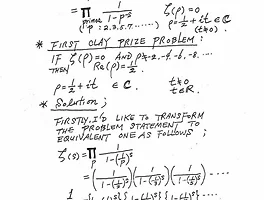 = ∏ 1/(1-p^-s)  ζ(ρ)=0
prime p : 2,3,5,7......  ρ=1/2+it ∈ ℂ
(t≠0).
* FIRST CLAY PRIZE PROBLEM :
IF ζ(ρ)=0 AND ρ≠-2,-4,-6,-8...
THEN Re(ρ)=1/2.
ρ=1/2+it ∈ ℂ  t≠0
t∈R.
* Solution ;
FIRSTLY, I'D LIKE TO TRANSFORM
THE PROBLEM STATEMENT TO
EQUIVALENT ONE AS FOLLOWS ;
ζ(s) = ∏p 1/(1-(1/p)^s)
= (1/(1-(1/2)^s))(1/(1-(1/3)^s))(1/(1-(1/5)^s)) ....